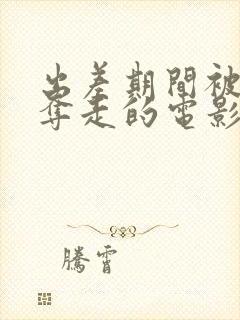 出差期間被
奪走的電影
騰霄